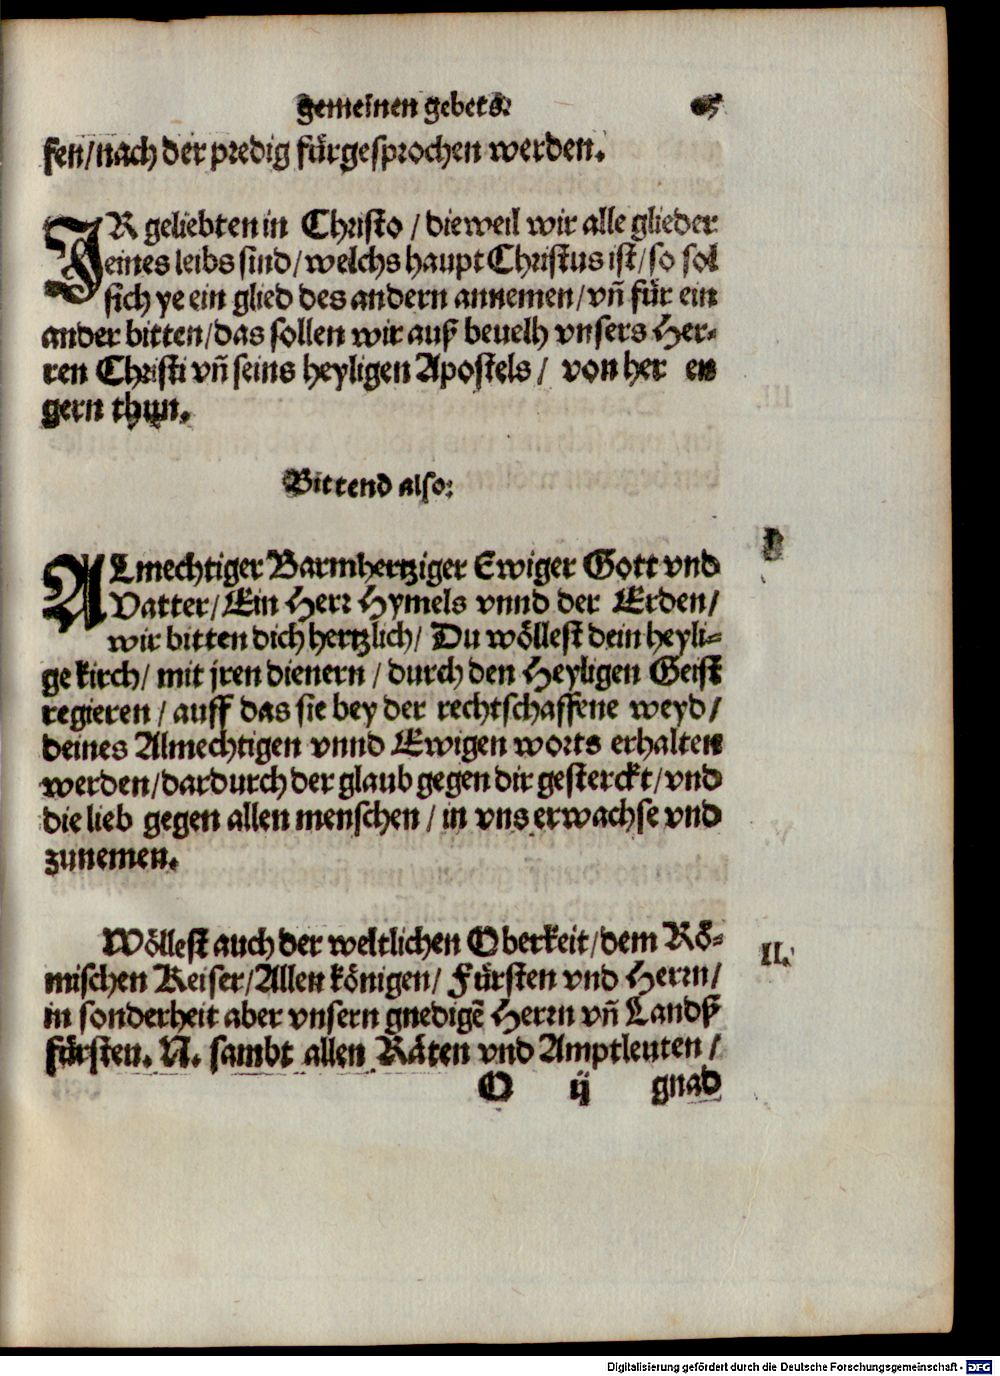 gemeinen gebets.
sen/nach der predig fürgesprochen werden.
IR geliebten in Christo / dieweil wir alle glieder
eines leibs sind/welchs haupt Christus ist/so sol
sich ye ein glied des andern annemen/vñ für ein
ander bitten/das sollen wir auß beuelh vnsers Her-
ren Christi vñ seins heyligen Apostels / von her en
gern thun.
Bittend also:
ALmechtiger Barmhertziger Ewiger Gott vnd
Vatter/Ein Herr Hymels vnnd der Erden/
wir bitten dich hertzlich/ Du wöllest dein heyli-
ge kirch/ mit jren dienern / durch den Heyligen Geist
regieren / auff das sie bey der rechtschaffene weyd/
deines Almechtigen vnnd Ewigen worts erhalten
werden/dardurch der glaub gegen dir gesterckt/vnd
die lieb gegen allen menschen / in vns erwachse vnd
zunemen.
Wöllest auch der weltlichen Oberkeit/dem Rö-
mischen Keiser/Allen königen/ Fürsten vnd Herrn/
in sonderheit aber vnsern gnedigẽ Herrn vñ Landß
fürsten. N. sambt allen Räten vnd Amptleuten /
O ij gnad
I.
II.
Digitalisierung gefördert durch die Deutsche Forschungsgemeinschaft - DFG